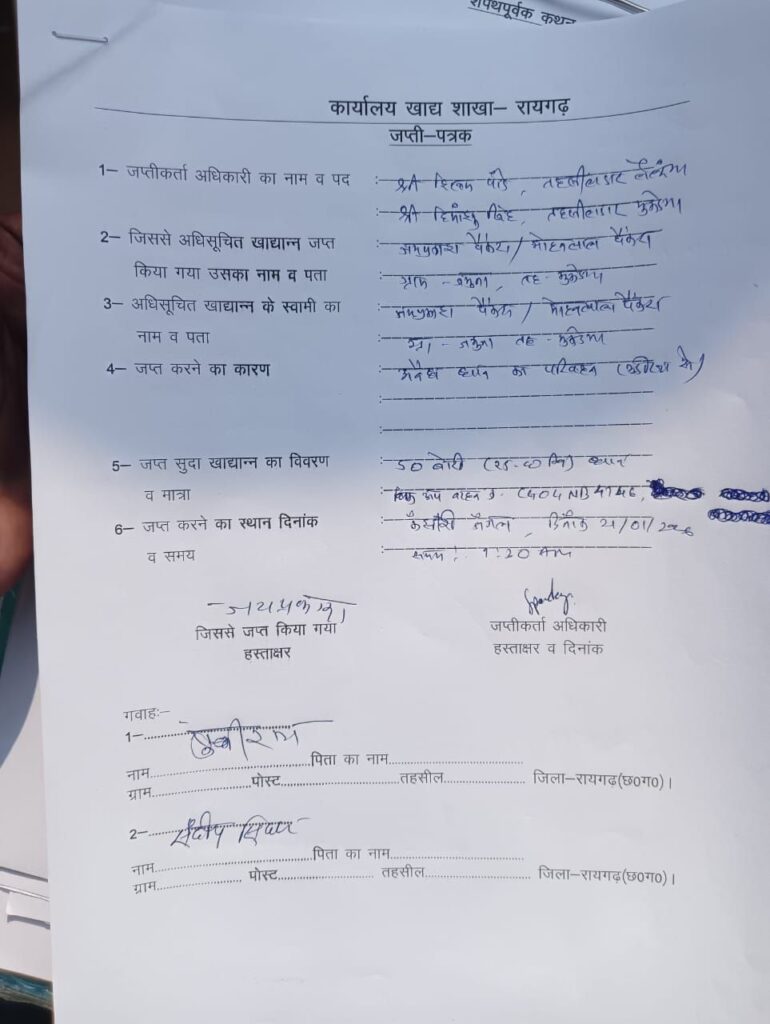 शपथपूर्वक कथन
कार्यालय खाद्य शाखा– रायगढ़
जप्ती–पत्रक
1– जप्तीकर्ता अधिकारी का नाम व पद :- श्री शिवम पांडे, तहसीलदार लैलूंगा
श्री हिमांशु सिंह, तहसीलदार मुकडेगा
2– जिससे अधिसूचित खाद्यान्न जप्त :- जयप्रकाश पैंकरा / मोहनलाल पैंकरा
किया गया उसका नाम व पता :- ग्राम - जमुना, तह - मुकडेगा
3– अधिसूचित खाद्यान्न के स्वामी का :- जयप्रकाश पैंकरा / मोहनलाल पैंकरा
नाम व पता :- ग्रा. - जमुना तह - मुकडेगा
4– जप्त करने का कारण :- अवैध धान का परिवहन (उड़ीसा से)
5– जप्त सुदा खाद्यान्न का विवरण :- 50 बोरी धान
व मात्रा :- पिकअप वाहन क्र. CG04NB4746,
6– जप्त करने का स्थान दिनांक :- दिनांक 21/01/2026
व समय :- समय : 1:20 AM
जयप्रकाश
जिससे जप्त किया गया जप्तीकर्ता अधिकारी
हस्ताक्षर हस्ताक्षर व दिनांक
गवाहः–
1–
नाम पिता का नाम
ग्राम पोस्ट तहसील जिला–रायगढ़(छ0ग0)।
2– संदीप सिदार
नाम पिता का नाम
ग्राम पोस्ट तहसील जिला–रायगढ़(छ0ग0)।